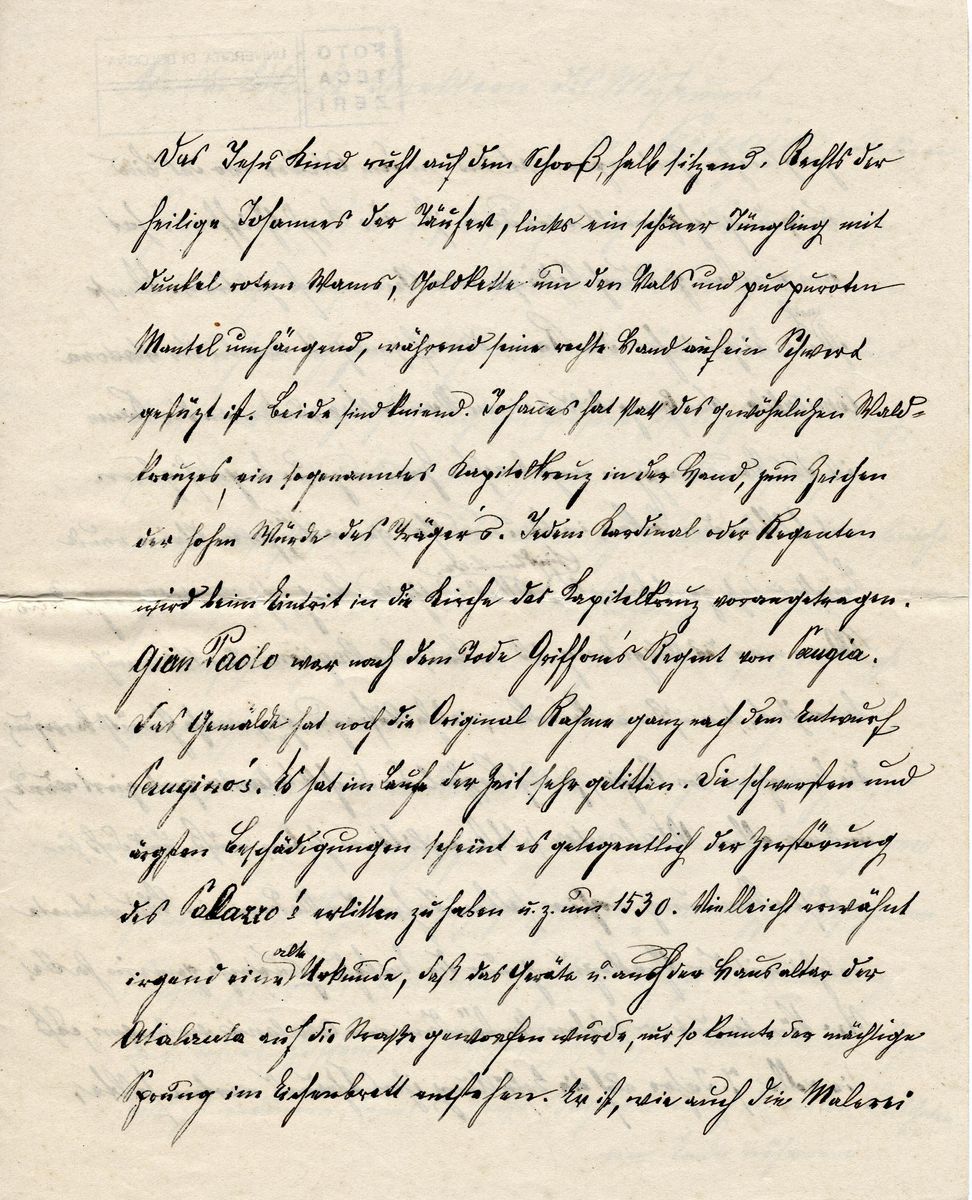 Das Jesu Kind ruht auf dem Schooß, halb sitzend. Rechts der
heilige Johannes der Täufer, links ein schöner Jüngling mit
dunkel rotem Wams, Goldkette um den Hals und purpurroten
Mantel umhängend, während seine rechte Hand auf ein Schwert
gestüzt ist. Beide sind kniend. Johannes hat statt des gewöhnlichen Wald-
kreuzes, ein sogenanntes Kapitelkreuz in der Hand, zum Zeichen
der hohen Würde des Träger's. Jedem Kardinal oder Regenten
wird beim Eintrit in die Kirche das Kapitelkreuz vorangetragen.
Gian Paolo war nach dem Tode Griffone's Regent von Perugia.
Das Gemälde hat noch die Original Rahme ganz nach dem Entwurf
Perugino's. Es hat im Laufe der Zeit sehr gelitten. Die schwersten und
ärgsten Beschädigungen scheint es gelegentlich der Zerstörung
des Palazzo's erlitten zu haben u. z. um 1530. Vielleicht erwähnt
irgend eine alte Urkunde, daß das Geräte u. auch der Hausaltar der
Atalanta auf die Straße geworfen wurde, nur so konnte der mächtige
Sprung im Eichenbrett entstehen. Er ist, wie auch die Malerei